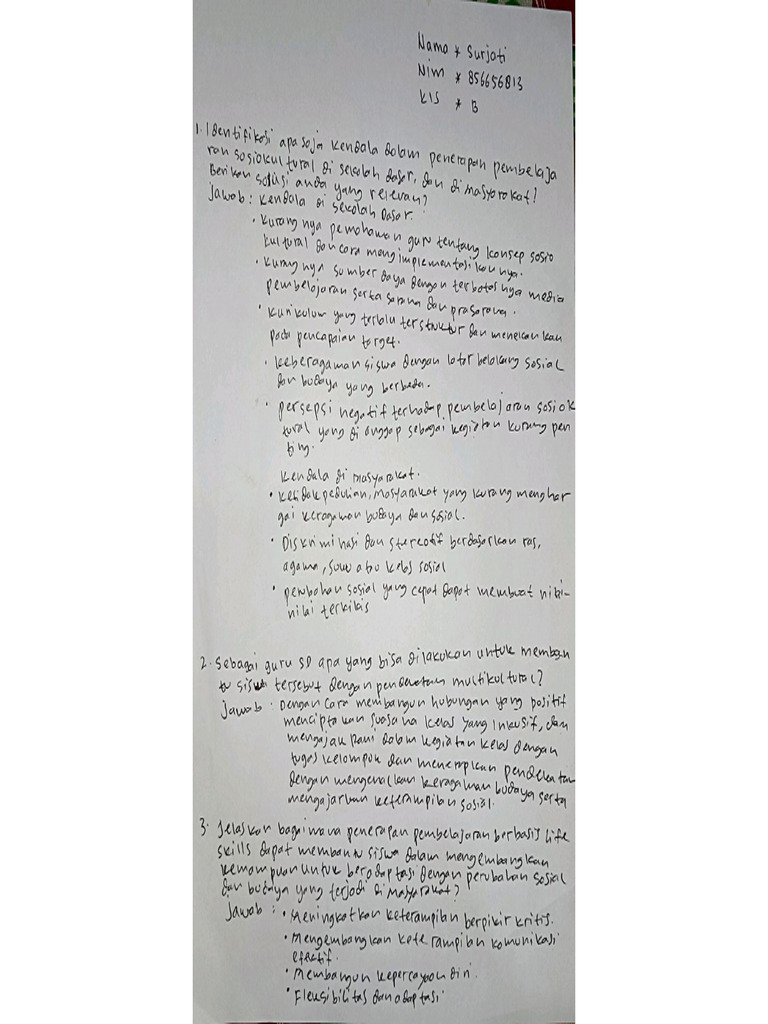 Nama * Surjati
Nim * 856656813
Kls * B
1. Identifikasi apa saja kendala dalam penerapan pembelaja
ran sosiokultural di sekolah dasar, dan di masyarakat?
Berikan solusi anda yang relevan?
Jawab : Kendala di sekolah Dasar.
• Kurang nya pemahaman guru tentang konsep sosio
kultural dan cara mengimplementasikannya.
• Kurangnya sumber daya dengan terbatasnya media
pembelajaran serta sarana dan prasarana.
• Kurikulum yang terlalu terstruktur dan menekankan
pada pencapaian target.
• Keberagaman siswa dengan latar belakang sosial
dan budaya yang berbeda.
• persepsi negatif terhadap pembelajaran sosiok
tural yang di anggap sebagai kegiatan kurang pen
ting.
Kendala di masyarakat.
• Ketidakpedulian, masyarakat yang kurang menghar
gai keragaman budaya dan sosial.
• Diskriminasi dan stereotif berdasarkan ras,
agama, suku atau kelas sosial
• perubahan sosial yang cepat dapat membuat nilai-
nilai terkikis
2. Sebagai guru SD apa yang bisa dilakukan untuk memban
tu siswa tersebut dengan pendekatan multikultural?
Jawab : Dengan cara membangun hubungan yang positif
menciptakan suasana kelas yang inkusif, dan
mengajak Rani dalam kegiatan kelas dengan
tugas kelompok dan menerapkan pendekatan
dengan mengenalkan keragaman budaya serta
mengajarkan keterampilan sosial.
3. Jelaskan bagaimana penerapan pembelajaran berbasis life
skills dapat membantu siswa dalam mengembangkan
kemampuan untuk beradaptasi dengan perubahan sosial
dan budaya yang terjadi di masyarakat?
Jawab : • Meningkatkan keterampilan berpikir kritis.
• Mengembangkan kete rampilan komunikasi
efektif.
• Membangun kepercayaan diri.
• Fleksibilitas dan adaptasi.